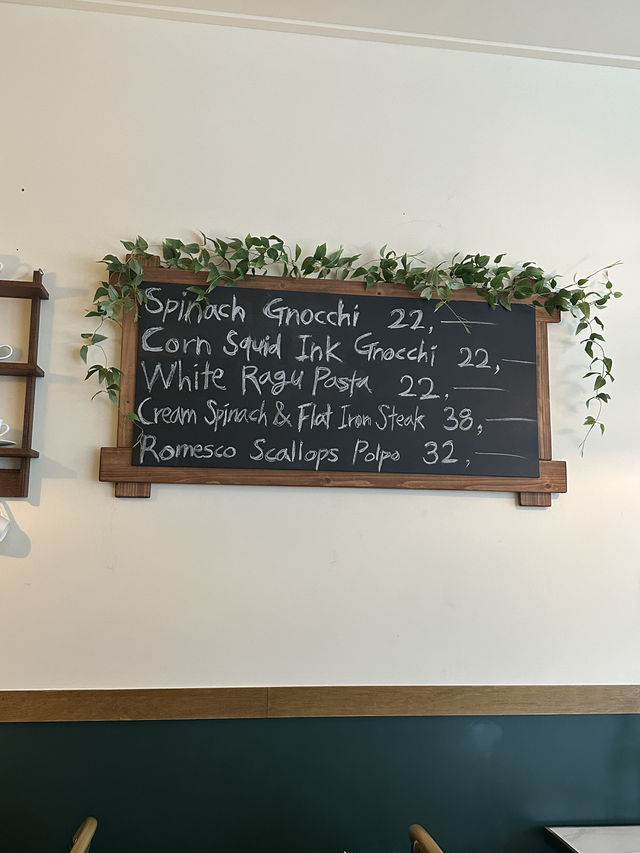 Spinach Gnocchi 22,—
Corn Squid Ink Gnocchi 22,—
White Ragu Pasta 22,—
Cream Spinach & Flat Iron Steak 38,—
Romesco Scallops Polpo 32,—